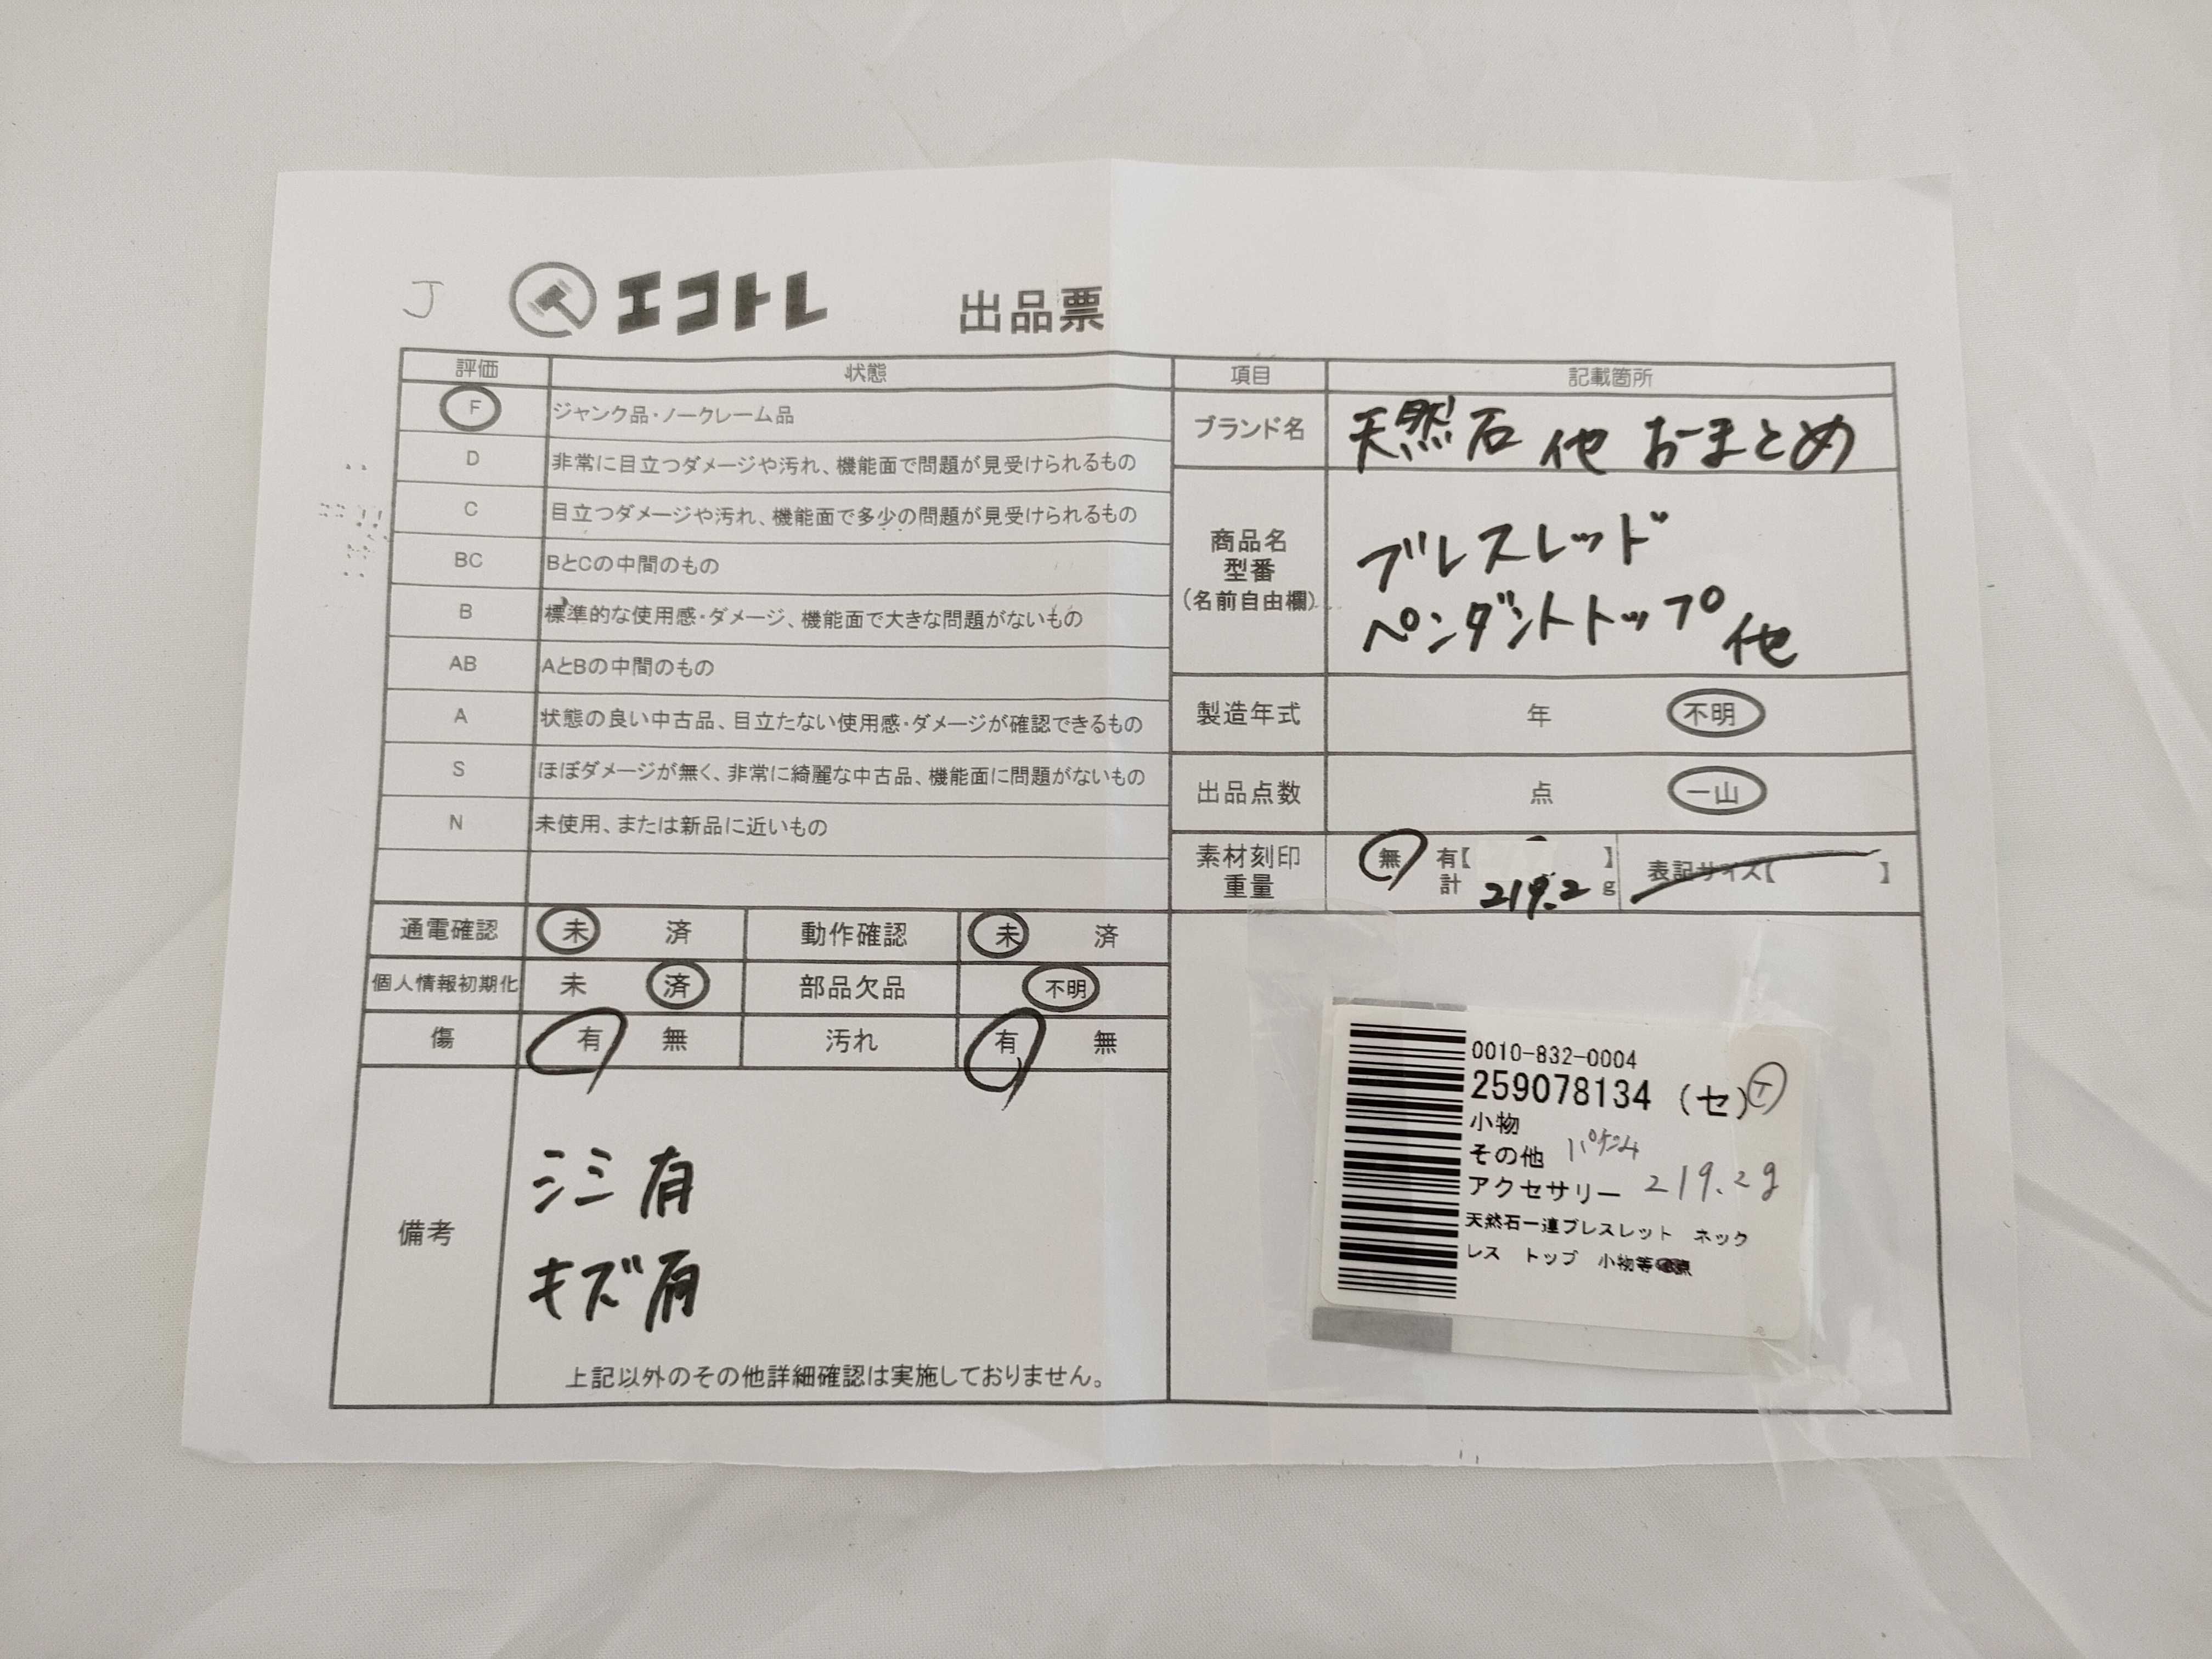 J エコトレ 出品票
評価 状態
F ジャンク品・ノークレーム品
D 非常に目立つダメージや汚れ、機能面で問題が見受けられるもの
C 目立つダメージや汚れ、機能面で多少の問題が見受けられるもの
BC BとCの中間のもの
B 標準的な使用感・ダメージ、機能面で大きな問題がないもの
AB AとBの中間のもの
A 状態の良い中古品、目立たない使用感・ダメージが確認できるもの
S ほぼダメージが無く、非常に綺麗な中古品、機能面に問題がないもの
N 未使用、または新品に近いもの
通電確認 未 済 動作確認 未 済
個人情報初期化 未 済 部品欠品 不明
傷 有 無 汚れ 有 無
備考
シミ有
キズ有
上記以外のその他詳細確認は実施しておりません。
項目 記載箇所
ブランド名 天然石 他 おまとめ
商品名
型番
(名前自由欄)
ブレスレッド
ペンダントトップ 他
製造年式 年 不明
出品点数 点 一山
素材刻印 無 有【 】 表記サイズ【 】
重量 計 219.2 g
0010-832-0004
259078134 (セ) T
小物
その他
アクセサリー 219.2g
天然石一連ブレスレット ネック
レス トップ 小物等 点